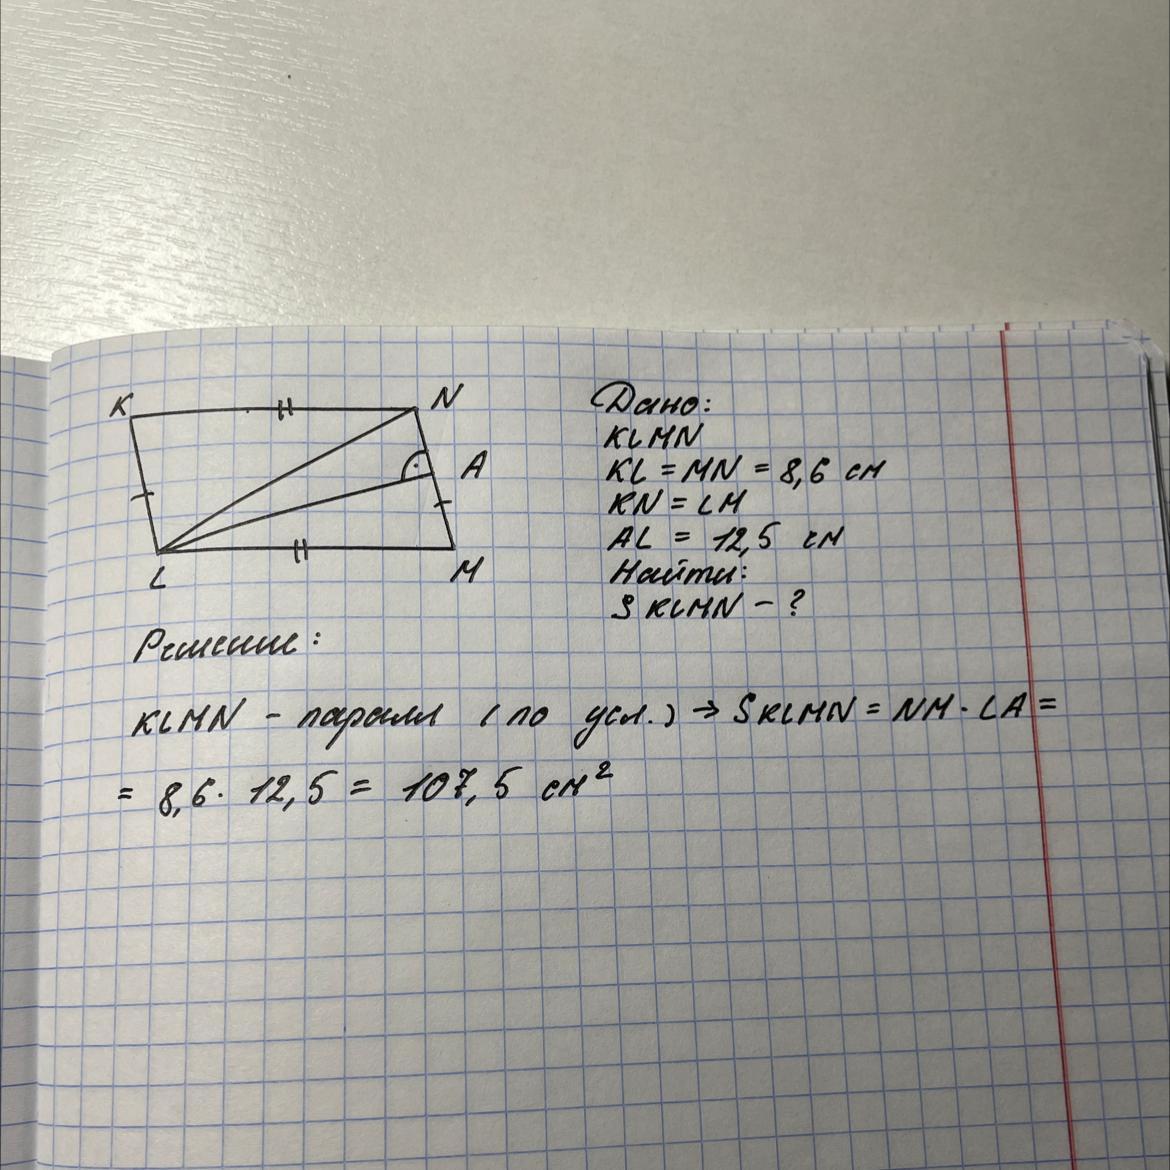 K
N
A
L
M
Дано:
KLMN
KL = MN = 8,6 см
KN = LM
AL = 12,5 см
Найти:
S KLMN - ?
Решение:
KLMN - паралл (по усл.) → SKLMN = NM · LA =
= 8,6 · 12,5 = 107,5 см²